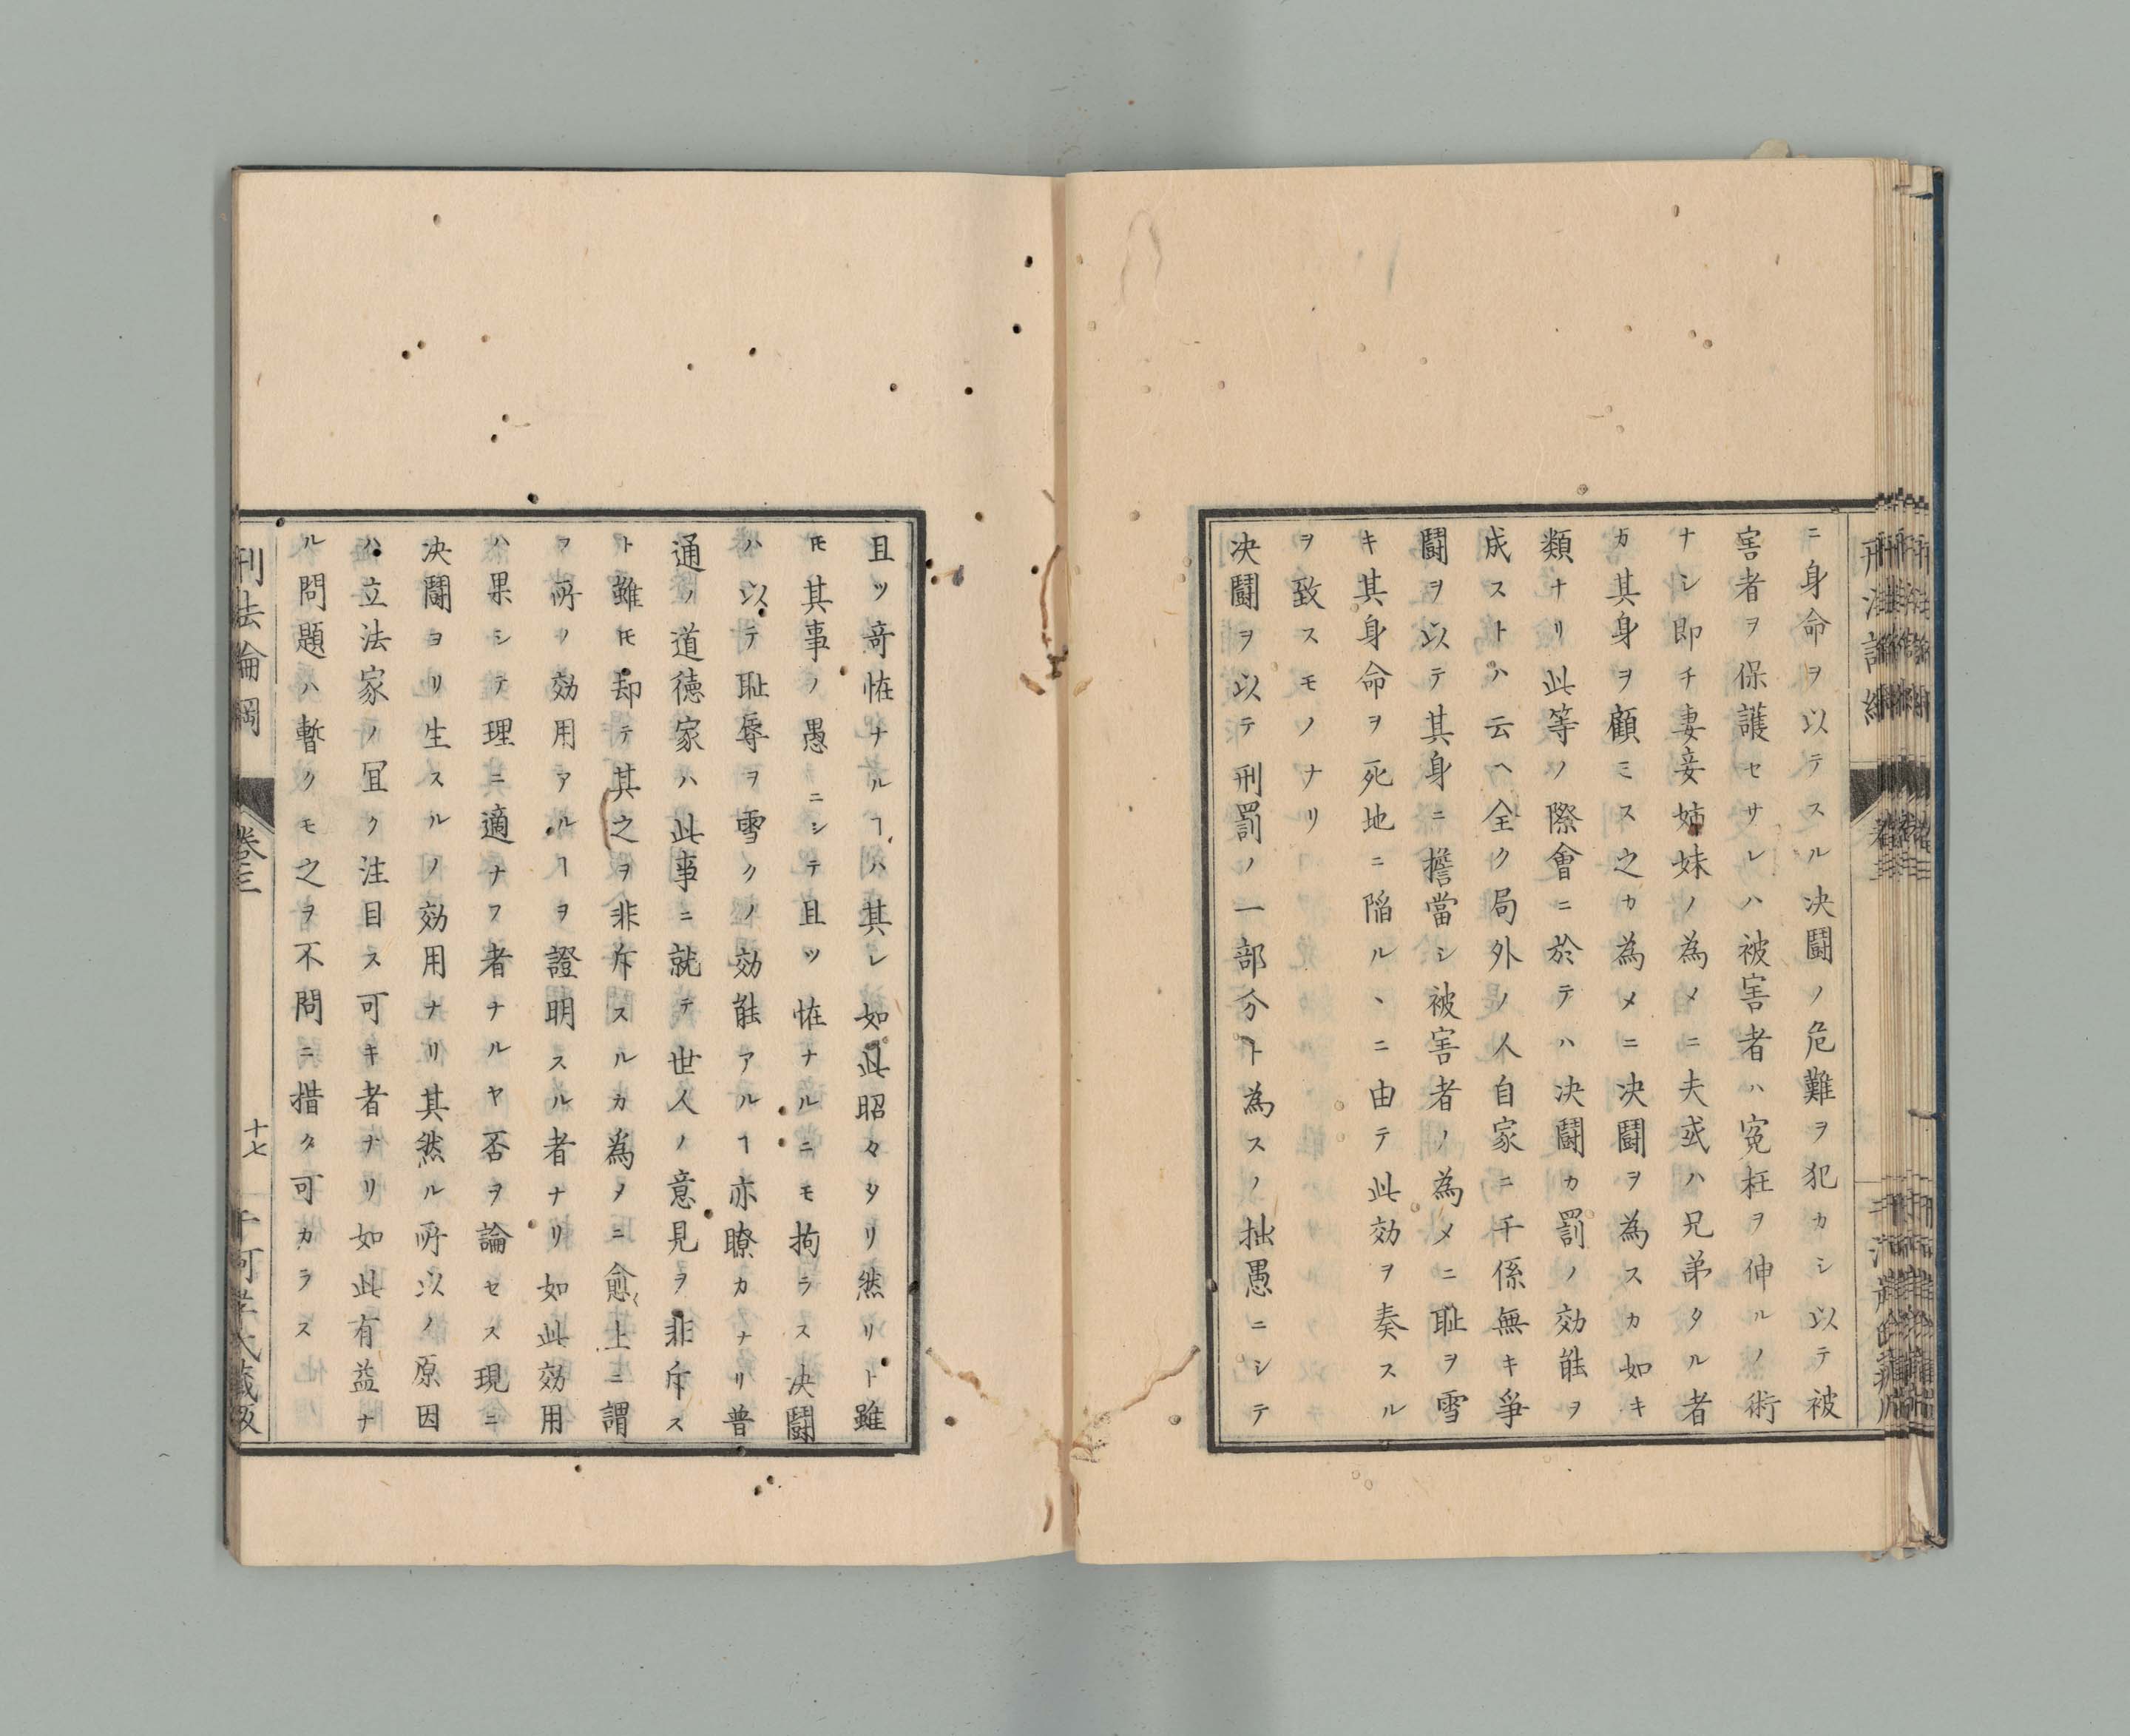 ニ身命ヲ以テスル决鬪ノ危難ヲ犯カシ以テ被
害者ヲ保護セサレハ被害者ハ寃枉ヲ伸ルノ術
ナシ即チ妻妾姉妹ノ為メニ夫或ハ兄弟タル者
カ其身ヲ顧ミス之カ為メニ决鬪ヲ為スカ如キ
類ナリ此等ノ際會ニ於テハ决鬪カ罰ノ効能ヲ
成ストハ云ヘ全ク局外ノ人自家ニ干係無キ爭
鬪ヲ以テ其身ニ擔當シ被害者ノ為メニ耻ヲ雪
キ其身命ヲ死地ニ陷ルヽニ由テ此効ヲ奏スル
ヲ致スモノナリ
决鬪ヲ以テ刑罰ノ一部分ト為スノ拙愚ニシテ
且ツ竒恠ナルヿハ其レ如此昭々タリ然リト雖
𪜈其事ノ愚ニシテ且ツ恠ナルニモ拘ラス决鬪
ハ以テ耻辱ヲ雪クノ効能アルヿ亦瞭カナリ普
通ノ道徳家ハ此事ニ就テ世人ノ意見ヲ非斥ス
ト雖𪜈却テ其之ヲ非斥スルカ為メニ愈上ニ謂
フ所ノ効用アルヿヲ證明スル者ナリ如此効用
ハ果シテ理ニ適ナフ者ナルヤ否ヲ論セス現ニ
决鬪ヨリ生スルノ効用ナリ其然ル所以ノ原因
ハ立法家ノ冝ク注目ス可キ者ナリ如此有益ナ
ル問題ハ暫クモ之ヲ不問ニ措ク可カラス
刑法論綱
卷三
十七